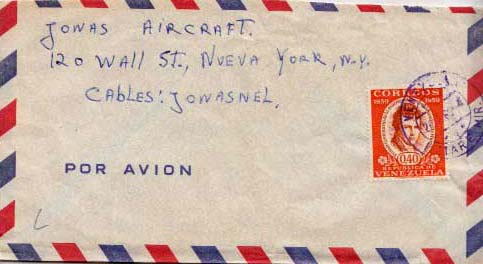 JONAS AIRCRAFT.
120 WALL ST., NUEVA YORK, N.Y.
CABLES: JONASNEL.
CORREOS
1859 1959
0,40
REPUBLICA DE
VENEZUELA
POR AVION